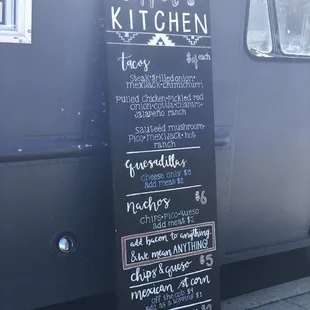 KITCHEN
tacos $4 each
Steak·grilled onion·
mexijack·chimichurri
pulled chicken·pickled red
onion·cotija·cilantro·
jalapeño ranch
sauteed mushroom·
pico·mexijack·hot
ranch
quesadillas
cheese only $5
add meat $2
nachos $6
chips·pico·queso
add meat $2
add bacon to anything
& we mean ANYTHING!
chips & queso $5
mexican st corn
off the cob $4
add as a topping $2